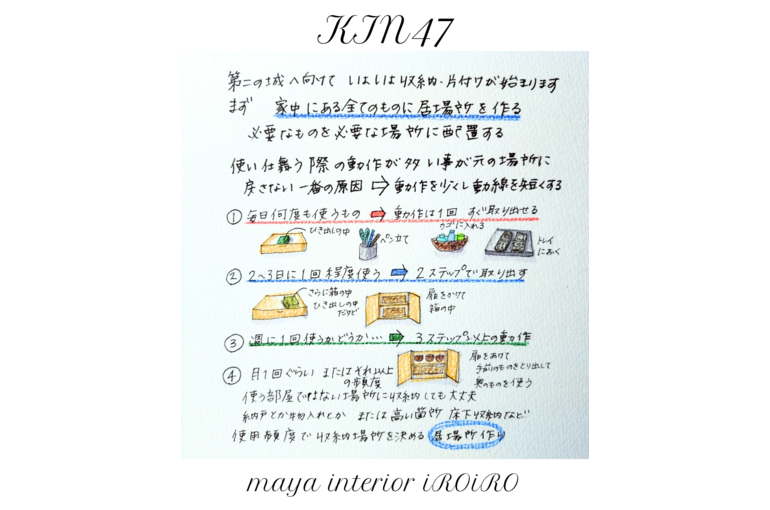 KIN47
第二の城へ向けて いよいよ収納・片付けが始まります
まず 家中にある全てのものに居場所を作る
必要なものを必要な場所に配置する
使い仕舞う際の動作が多い事が元の場所に
戻さない一番の原因 ⇨ 動作を少くし動線を短くする
① 毎日何度も使うもの ➡ 動作は1回 すぐ取り出せる
ひき出しの中
ペン立て
カゴに入れる
トレイ
におく
② 2〜3日に1回程度使う ➡ 2ステップで取り出す
さらに箱の中
ひき出しの中
だけど
扉をあけて
箱の中
③ 週に1回使うかどうか… ➡ 3ステップ以上の動作
扉をあけて
手前のものをとり出して
奥のものを使う
④ 月1回ぐらい またはそれ以上
の頻度
使う部屋ではない場所に収納しても大丈夫
納戸とか物入れとか または高い箇所 床下収納など
使用頻度で収納場所を決める 居場所作り
maya interior iROiRO